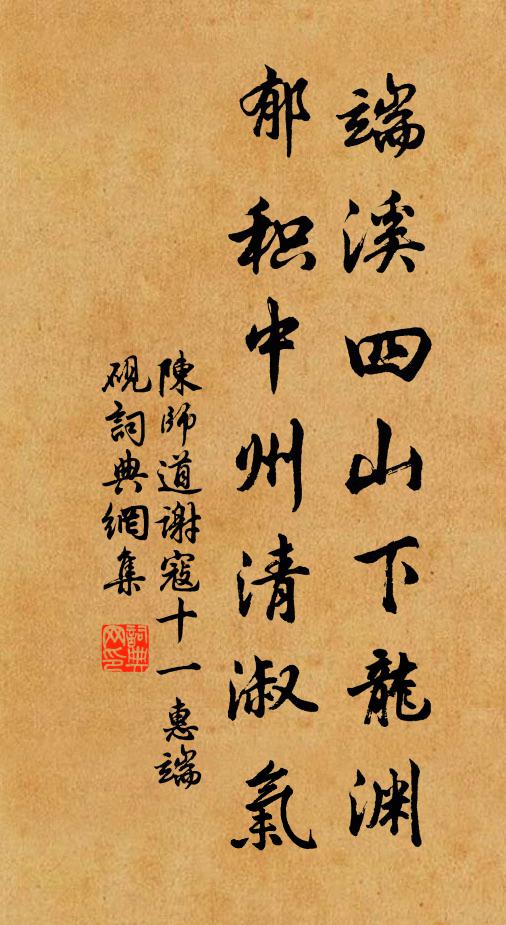 端溪四山下龍渊
郁积中州清淑氣
陳師道谢寇十一惠端
砚詞典網集
詞典网印